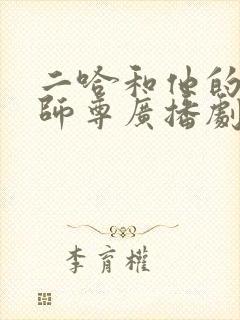 二哈和他的
師尊廣播劇
李育權